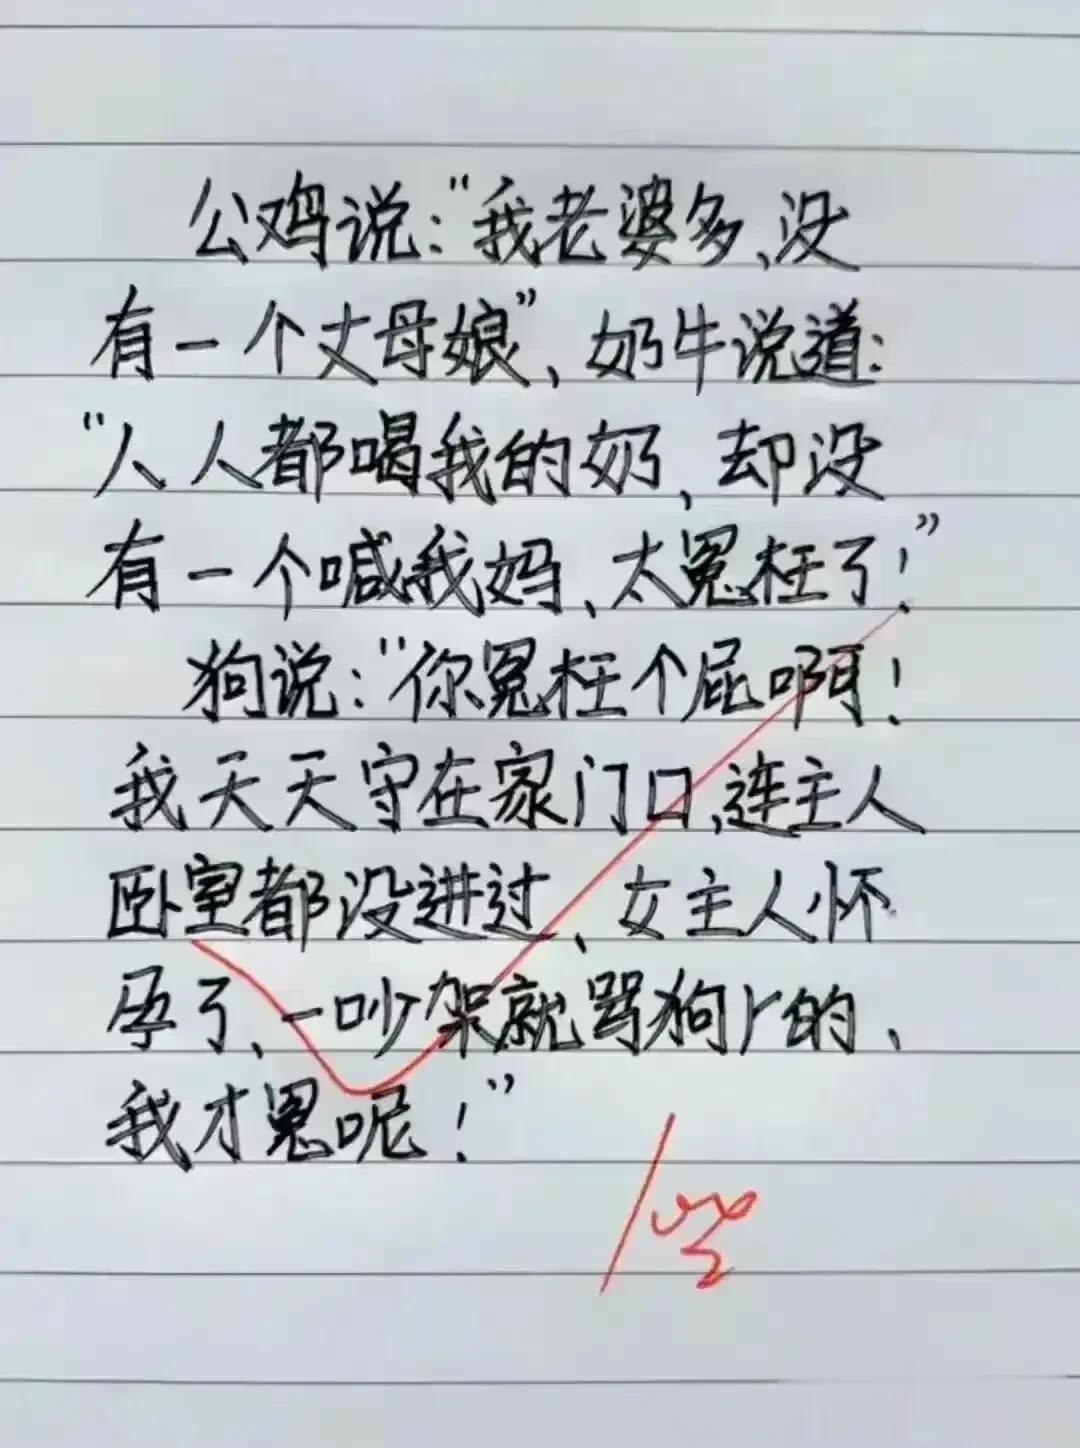 公鸡说:“我老婆多、没
有一个丈母娘”、奶牛说道:
“人人都喝我的奶、却没
有一个喊我妈、太冤枉了!”
狗说:“你冤枉个屁啊!
我天天守在家门口,连主人
卧室都没进过、女主人怀
孕了、一吵架就骂狗r的、
我才冤呢!”